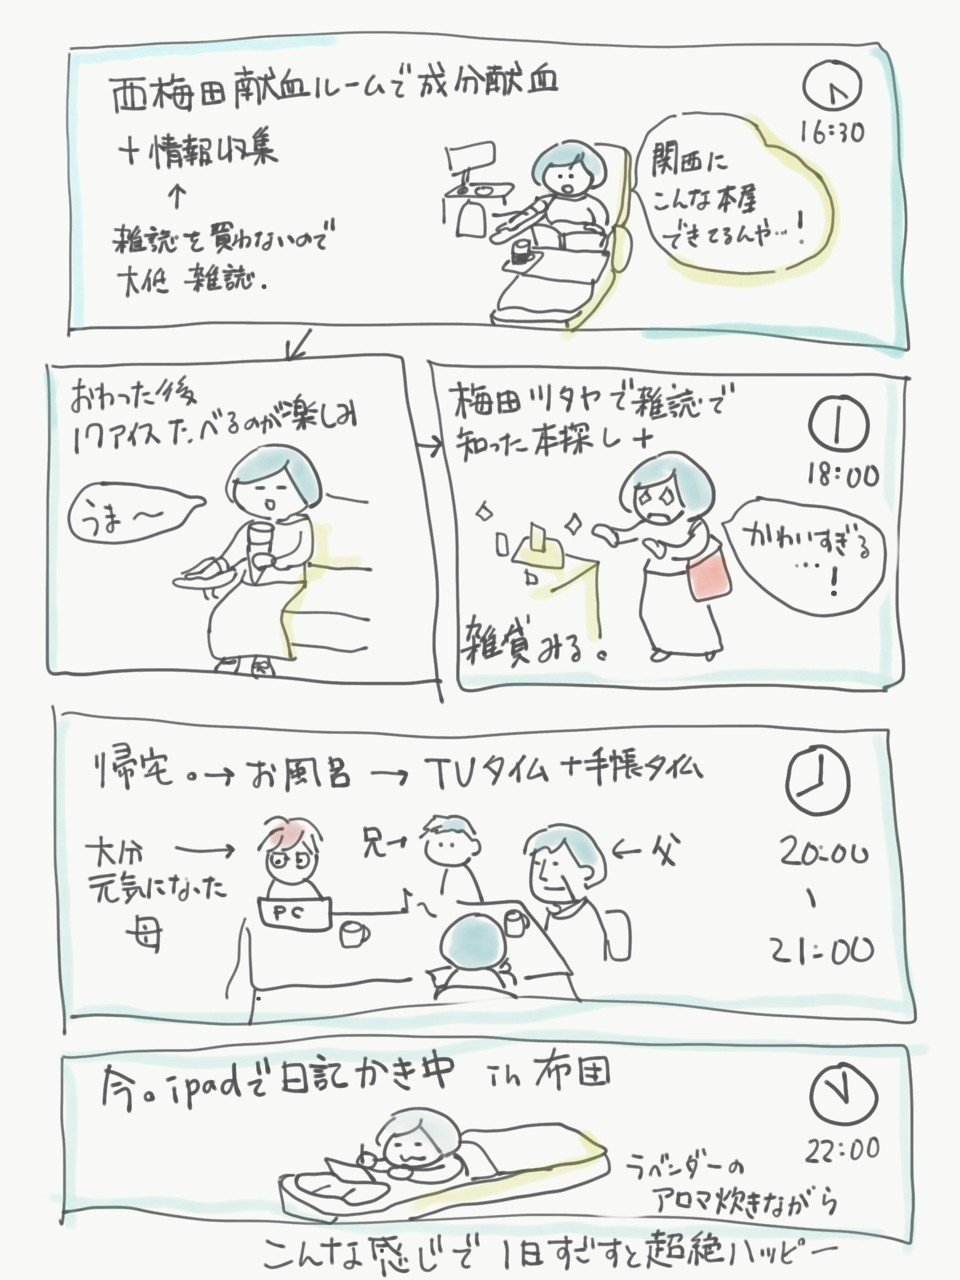 西梅田献血ルームで成分献血
+情報収集
↑
雑誌を買わないので
大低 雑誌.
16:30
関西に
こんな本屋
できてるんや…!
おわった後
17アイスたべるのが楽しみ
うま〜
梅田ツタヤで雑誌で
知った本探し+
18:00
かわいすぎる
…!
雑貨みる。
帰宅。→お風呂→TVタイム+手帳タイム
大分
元気になった
母
兄→
←父
PC
20:00
~
21:00
今。ipadで日記かき中 in 布団
22:00
ラベンダーの
アロマ炊きながら
こんな感じで1日すごすと超絶ハッピー